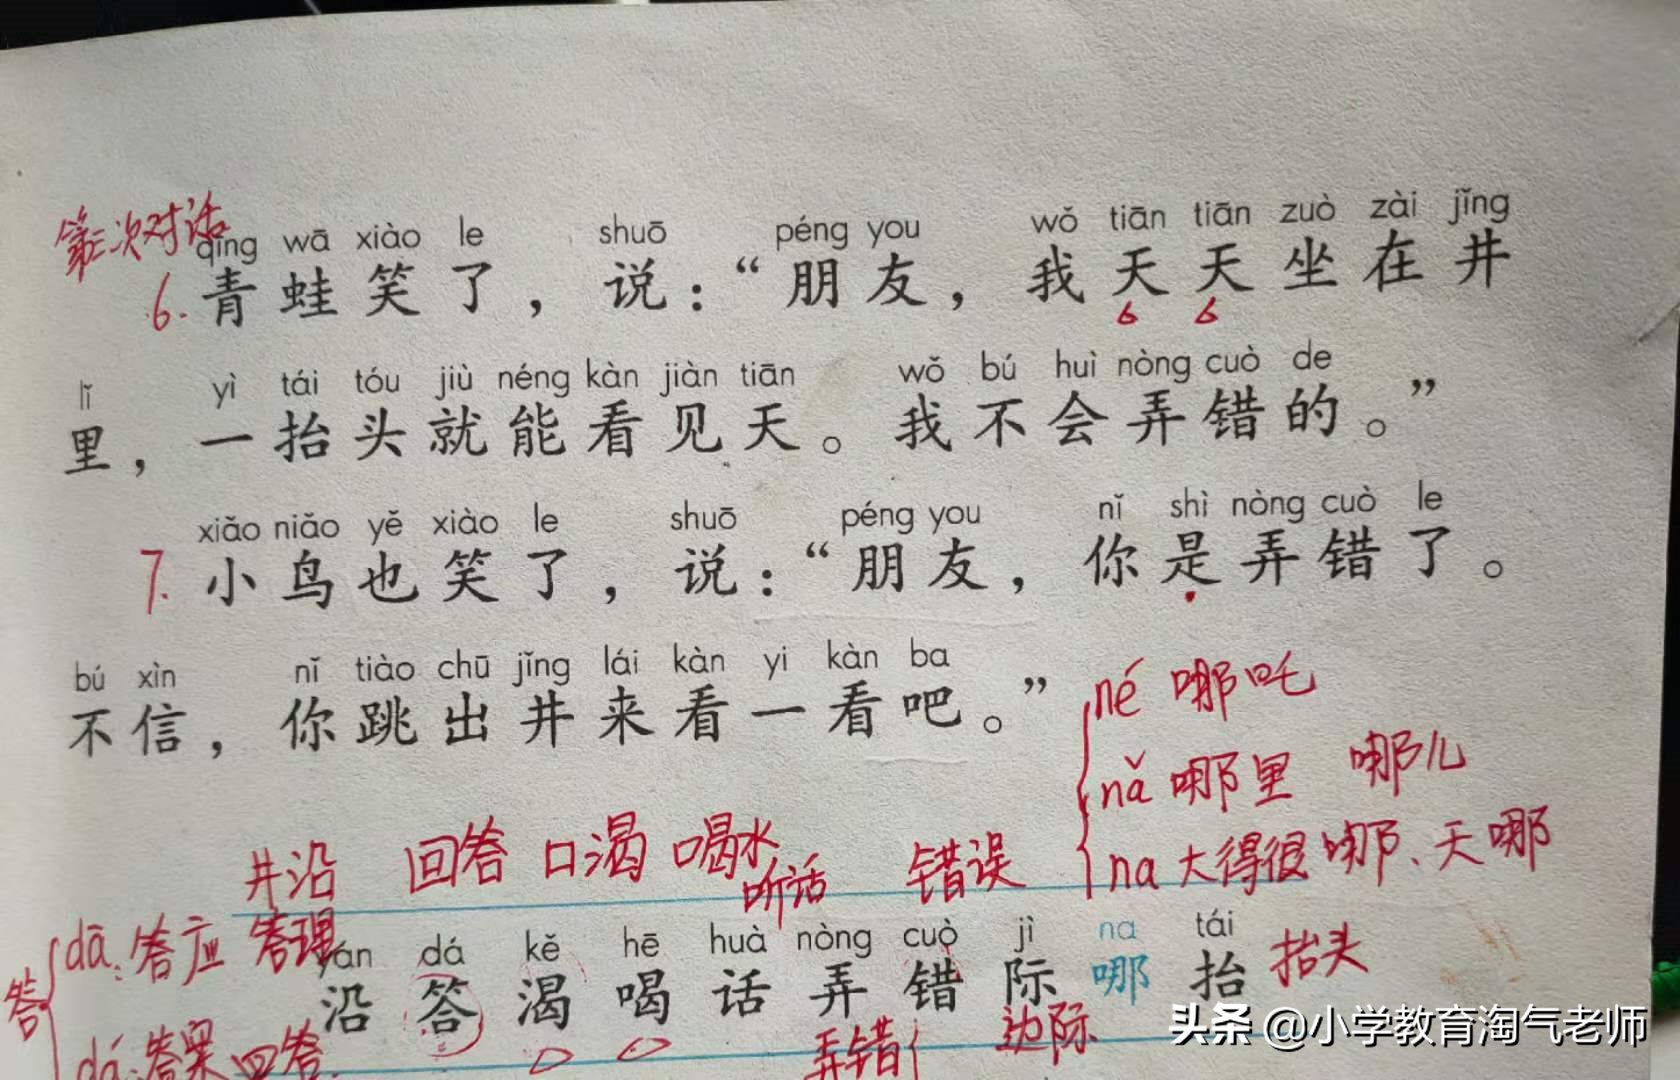 第三次对话
qīng wā xiào le shuō péng you wǒ tiān tiān zuò zài jǐng
6. 青蛙笑了，说：“朋友，我天天坐在井
lǐ yì tái tóu jiù néng kàn jiàn tiān wǒ bú huì nòng cuò de
里，一抬头就能看见天。我不会弄错的。”
xiǎo niǎo yě xiào le shuō péng you nǐ shì nòng cuò le
7. 小鸟也笑了，说：“朋友，你是弄错了。
bú xìn nǐ tiào chū jǐng lái kàn yi kàn ba
不信，你跳出井来看一看吧。”
né 哪吒
nǎ 哪里 哪儿
na 大得很哪、天哪
井沿 回答 口渴 喝水 听话 错误
dā：答应 答理
yán dá kě hē huà nòng cuò jì na tái
沿答渴喝话弄错际哪抬 抬头
答
dá：答案 回答.
弄错 边际
头条 @小学教育淘气老师